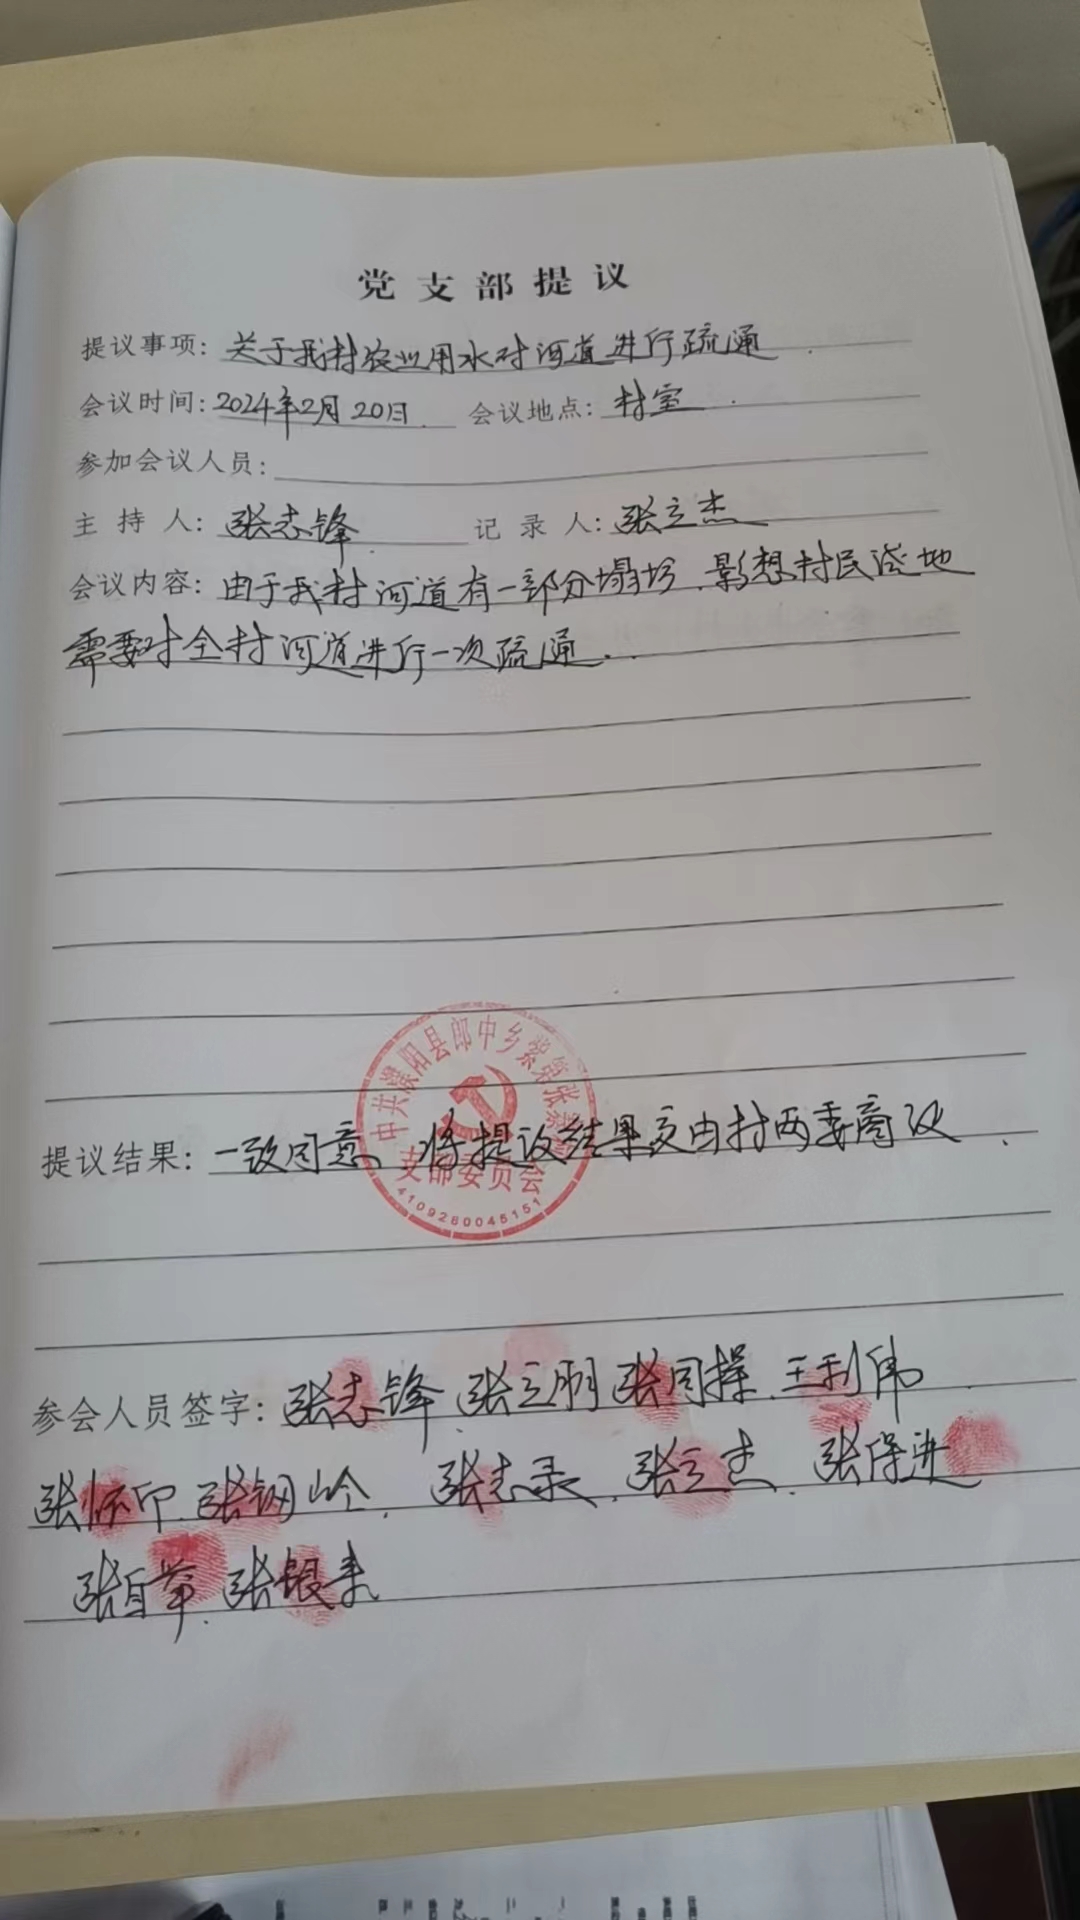 党支部提议
提议事项：关于我村农业用水对河道进行疏通.
会议时间：2024年2月20日. 会议地点：村室.
参加会议人员：
主持人：张志锋. 记录人：张立杰
会议内容：由于我村河道有一部分塌坊.影想村民浇地
需要对全村河道进行一次疏通..
中共濮阳县郎中乡 第张
支部委员会
4109280045151
提议结果：一致同意、将提议结果交由村两委商议.
参会人员签字：张志锋.张立朋 张同操.王利伟
张怀印.张钢岭. 张志录.张立杰.张保进
张自举.张银来